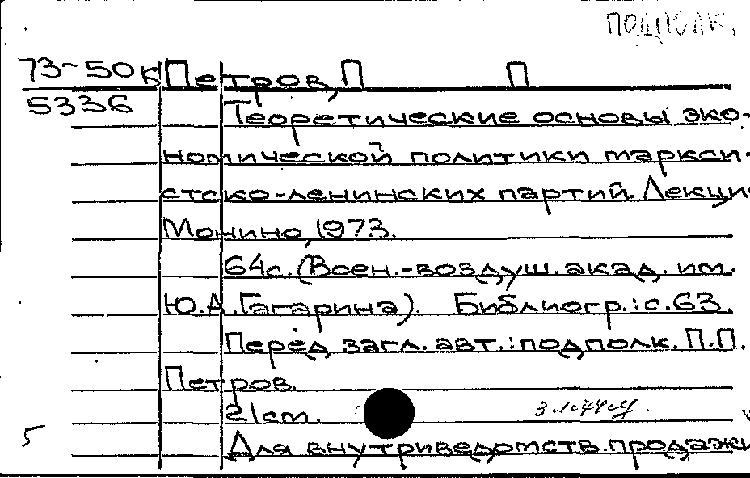 ПОДПОЛК.
73-50к Петров, П П
5336 Теоретические основы эко-
номической политики маркси-
стско-ленинских партий. Лекция
Монино, 1973.
64с. (Воен.-воздуш. акад. им.
Ю.А. Гагарина). Библиогр.: с.63.
Перед загл. авт.: подполк. П.П.
Петров.
21см.
5 Для внутриведомств. продажи